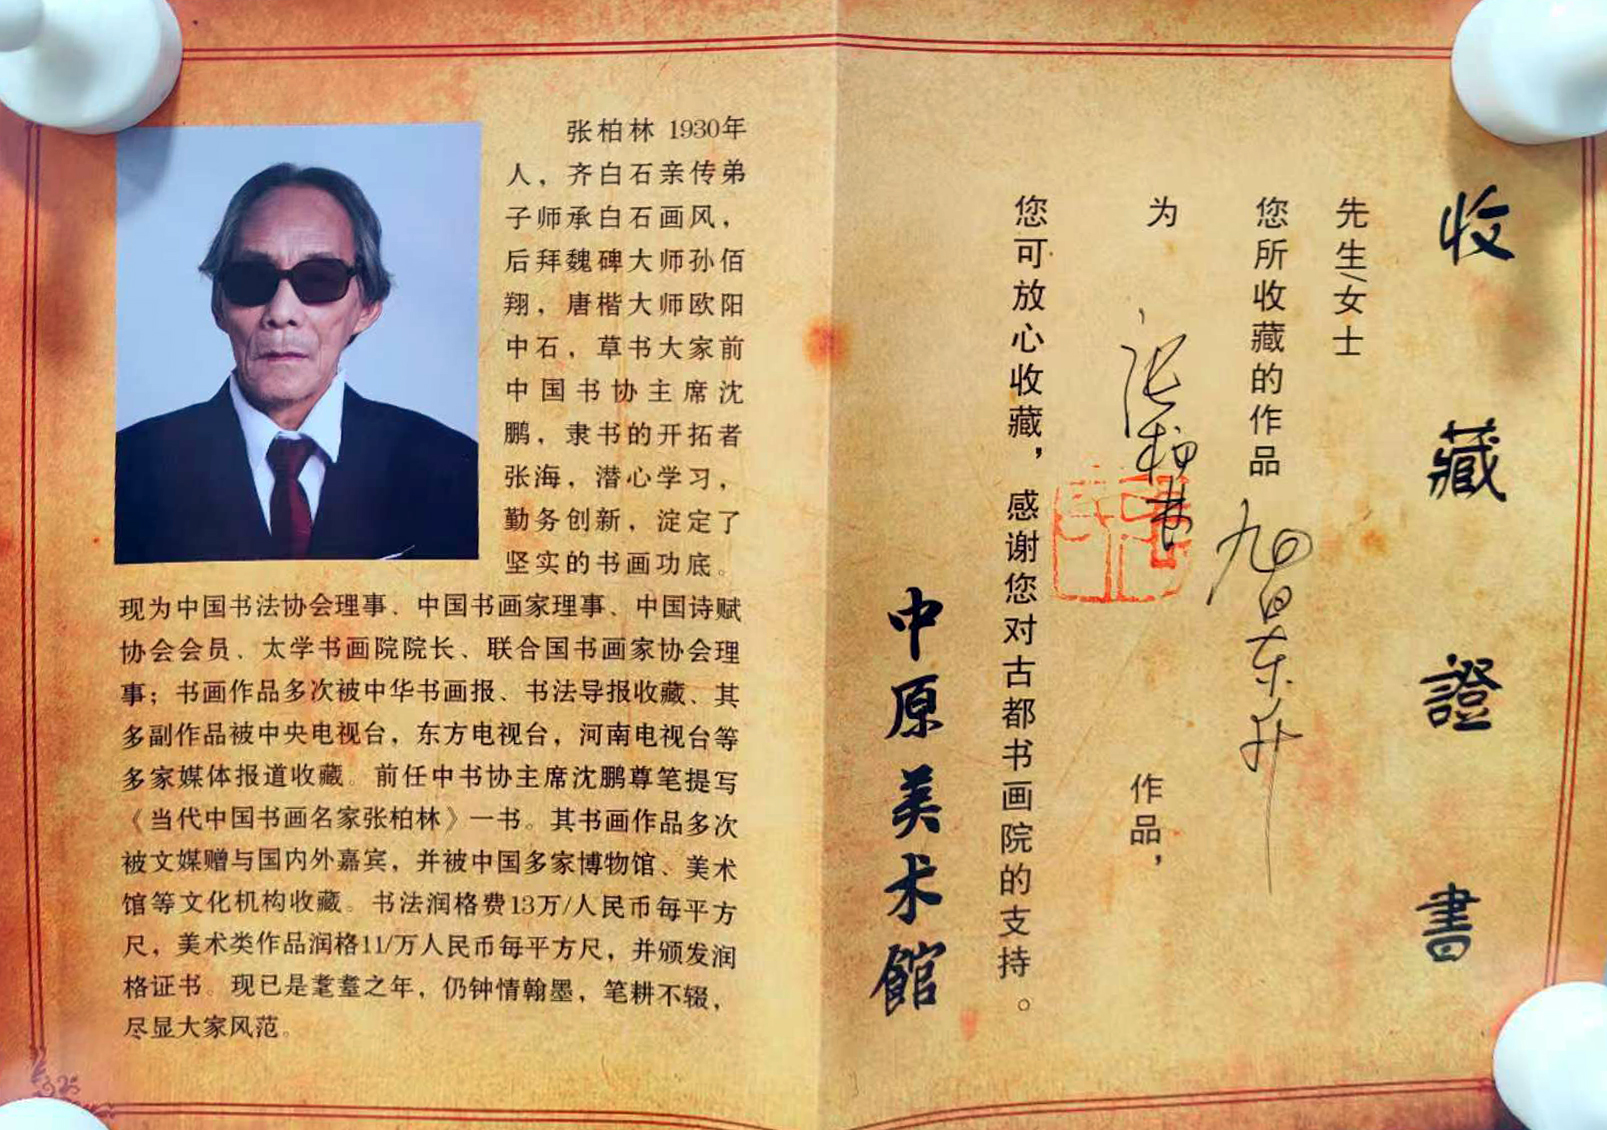 张柏林 1930年
人，齐白石亲传弟
子师承白石画风，
后拜魏碑大师孙佰
翔，唐楷大师欧阳
中石，草书大家前
中国书协主席沈
鹏，隶书的开拓者
张海，潜心学习，
勤务创新，淀定了
坚实的书画功底。
现为中国书法协会理事、中国书画家理事、中国诗赋
协会会员、太学书画院院长、联合国书画家协会理
事；书画作品多次被中华书画报、书法导报收藏、其
多副作品被中央电视台，东方电视台，河南电视台等
多家媒体报道收藏。前任中书协主席沈鹏尊笔提写
《当代中国书画名家张柏林》一书。其书画作品多次
被文媒赠与国内外嘉宾，并被中国多家博物馆、美术
馆等文化机构收藏。书法润格费13万/人民币每平方
尺，美术类作品润格11/万人民币每平方尺，并颁发润
格证书。现已是耄耋之年，仍钟情翰墨，笔耕不辍，
尽显大家风范。
收藏證書
先生/女士
您所收藏的作品 旭日东升
为 张柏林 作品，
您可放心收藏，感谢您对古都书画院的支持。
中原美术館